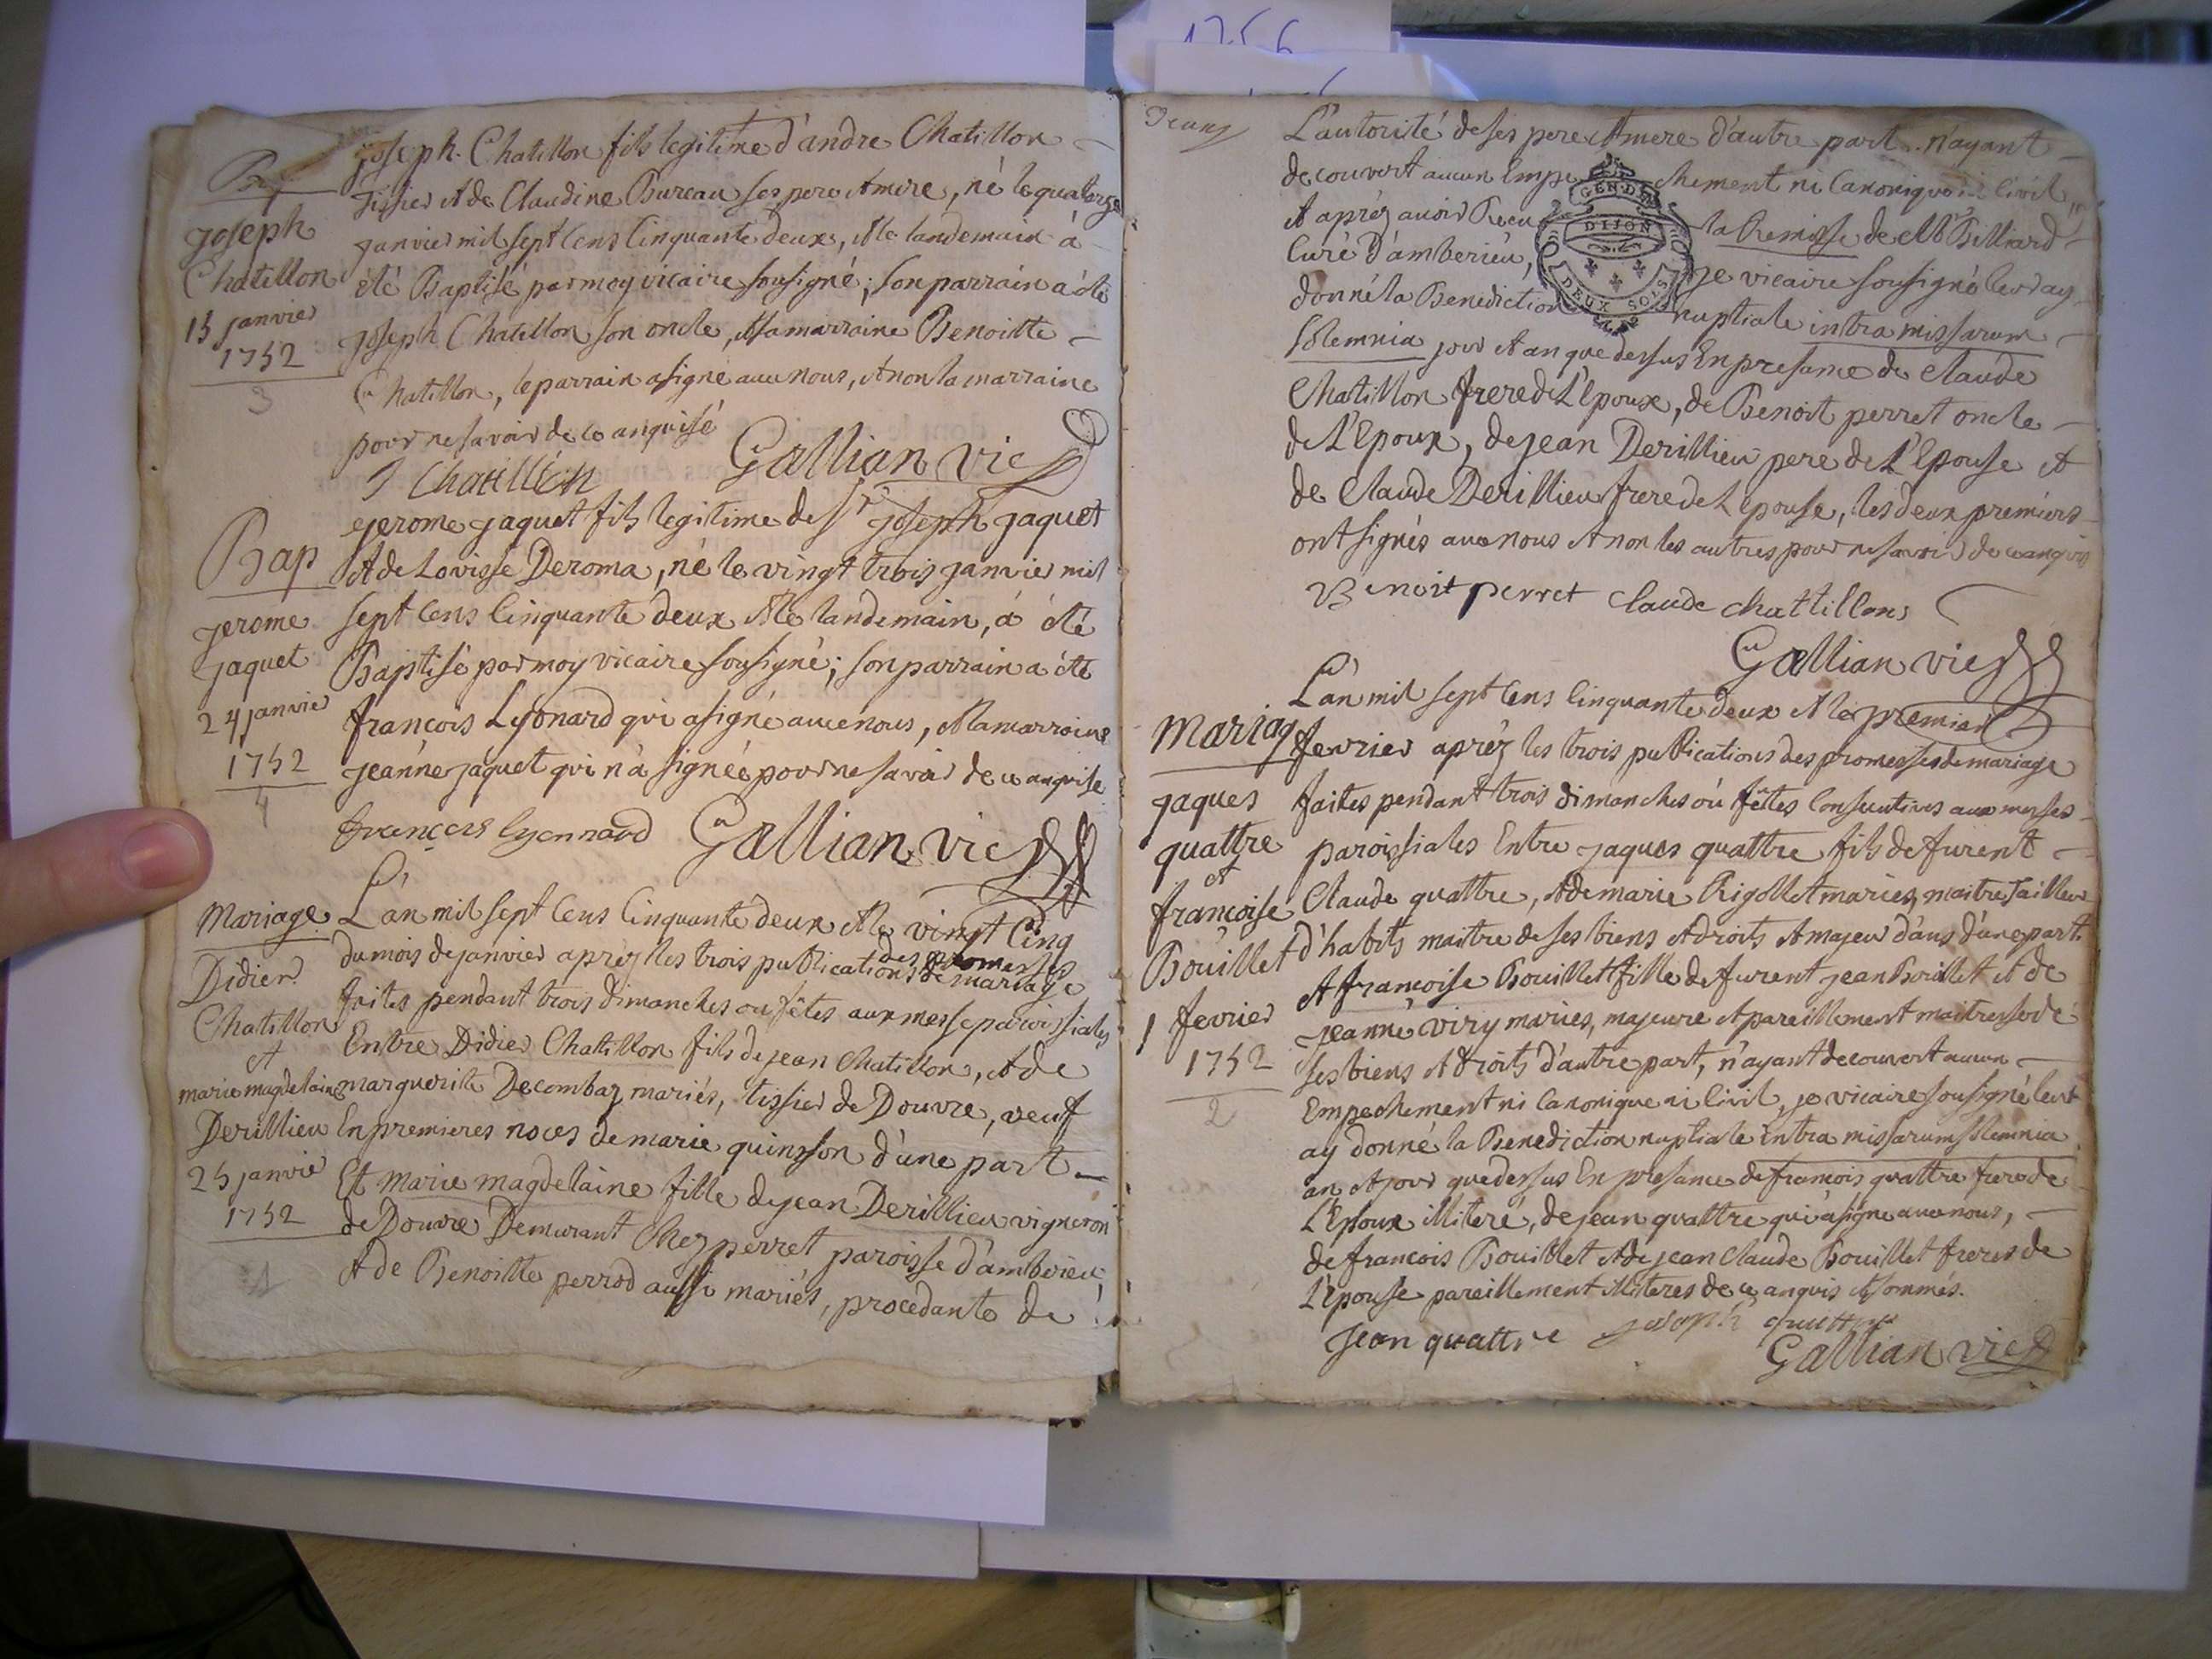 1756
Bap
Joseph
Chatillon
15 janvier
1752
3
joseph Chatillon fils legitime d'andre Chatillon
Tissier et de Claudine Bureau ses pere et mere, né le quatorze
janvier mil sept cens cinquante deux, et le landemain à
été Baptisé par moy vicaire sousigné; son parrain a été
joseph Chatillon son oncle, et sa marraine Benoitte
Chatillon, le parrain a signé avec nous, et non la marraine
pour ne savoir de ce anquise
J Chatillon Gallian vic
Bap
jerome
jaquet
24 janvier
1752
4
jerome jaquet fils legitime de Sr joseph jaquet
et de Lovisse Deroma, né le vingt trois janvier mil
sept cens cinquante deux et le landemain, à été
Baptisé par moy vicaire sousigné; son parrain a été
francois Lyonard qui a signé avec nous, et la marraine
jeanne jaquet qui n'a signée pour ne savoir de ce anquise
françois lyonnard Gallian vic
Mariage
Didier
Chatillon
et
marie magdelaine
Derillieu
25 janvier
1752
1
L'an mil sept cens cinquante deux et le vingt cinq
du mois de janvier aprèz les trois publications des promesses de mariage
faites pendant trois dimanches ou fêtes aux messe paroissiales
Entre Didier Chatillon fils de jean Chatillon, et de
marguerite Decombaz mariés, tissier de Douvre, veuf
En premieres noces de marie quinson d'une part
Et marie magdelaine fille de jean Derillieu vigneron
de Douvre Demurant Chez perret paroisse d'amberieu,
et de Benoitte perrod aussi mariés, procedante de
L'autorité de ses pere et mere d'autre part. n'ayant
decouvert aucun Empechement ni Canonique ni Civil,
et aprèz avoir Recu la Remisse de Mr Billiard
Curé d'amberieu, je vicaire sousigné leur ay
donné la Benediction nuptiale intra missarum
Solemnia jour et an que dessus En presance de Claude
Chatillon frere de L'Epoux, de Benoit perret oncle
de L'Epoux, de jean Derillieu pere de L'Epouse et
de Claude Derillieu frere de L'epouse, les deux premiers
ont signés avec nous et non les autres pour ne savoir de ce anquis
GEN. DE
DIJON
DEUX SOLS
Benoit perret Claude Chattillons
Gallian vic
Mariag
jaques
quattre
et
françoise
Bouillet
1 fevrier
1752
2
L'an mil sept cens cinquante deux et le premier
fevrier aprèz les trois publications des promesses de mariage
faites pendant trois dimanches où fêtes Consecutives aux messes
paroissiales Entre jaques quattre fils de furent
Claude quattre, et de marie Rigollet mariez, maitre tailleur
d'habits maitre de ses biens et droits et majeur d'ans d'une part.
et francoise Bouillet fille de furent jean Bouillet et de
jeanne viry mariés, majeure et pareillement maitresse de
ses biens et droits d'autre part, n'ayant decouvert aucun
Empechement ni Canonique ni Civil, je vicaire sousigné leur
ay donné la Benediction nuptiale Intra missarum solemnia
an et jour que dessus En presance de francois quattre frere de
L'Epoux illiteré, de jean quattre qui a signe avec nous,
de francois Bouillet et de jean Claude Bouillet freres de
L'Epouse pareillement illiteres de ce anquis et sommés.
jean quattre joseph quattre
Gallian vic